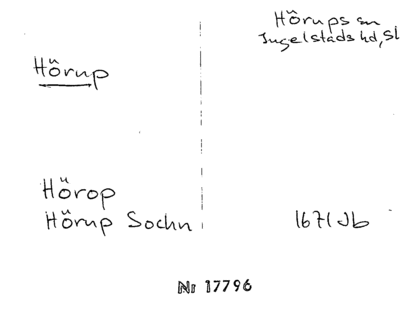 Hörups sn
Ingelstads hd, Sk
Hörup
Hörop
Hörup Sochn
1671 Jb
Nr 17796